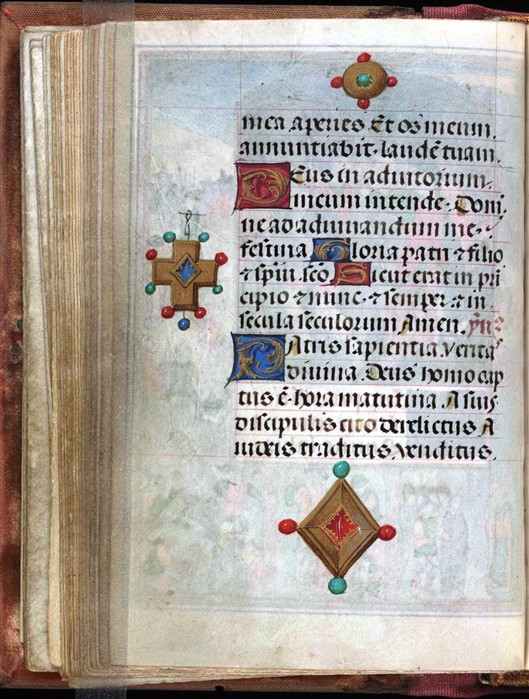 mea aperies. Et os meum.
annuntiabit. laudē tuam.
Deus in adiutorium.
meum intende. Domi
ne ad adiuuandum me.
festina. Gloria patri ⁊ filio
⁊ spiri. scō. Sicut erat in pri
cipio ⁊ nunc. ⁊ semper. ⁊ in
secula seculorum Amen.
Patris sapientia. verita
diuina. Deus homo cap
tus ē. hora matutina. A suis
discipulis cito derelictus A
iudeis traditus, venditus.